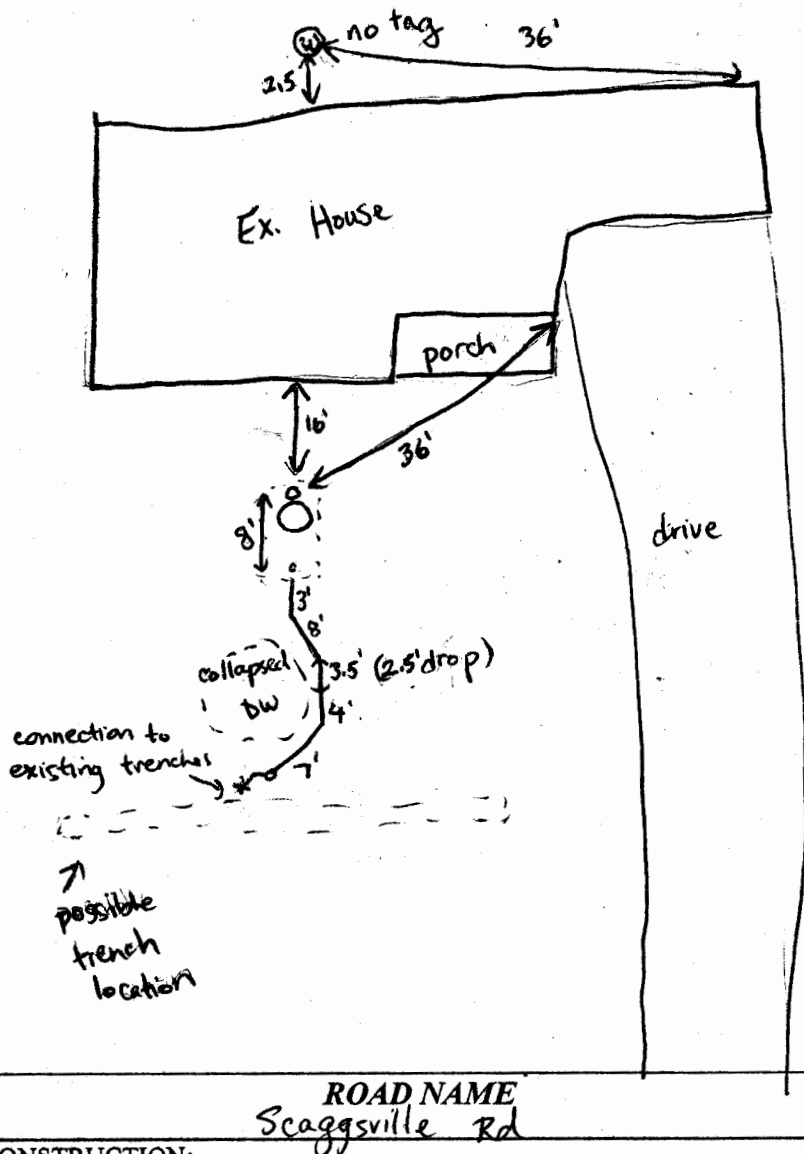 no tag
36'
W
2.5
Ex. House
porch
16'
36'
8'
drive
3'
8'
collapsed
DW
3.5' (2.5' drop)
4'
connection to
existing trenches
7'
possible
trench
location
ROAD NAME
Scaggsville Rd
CONSTRUCTION: